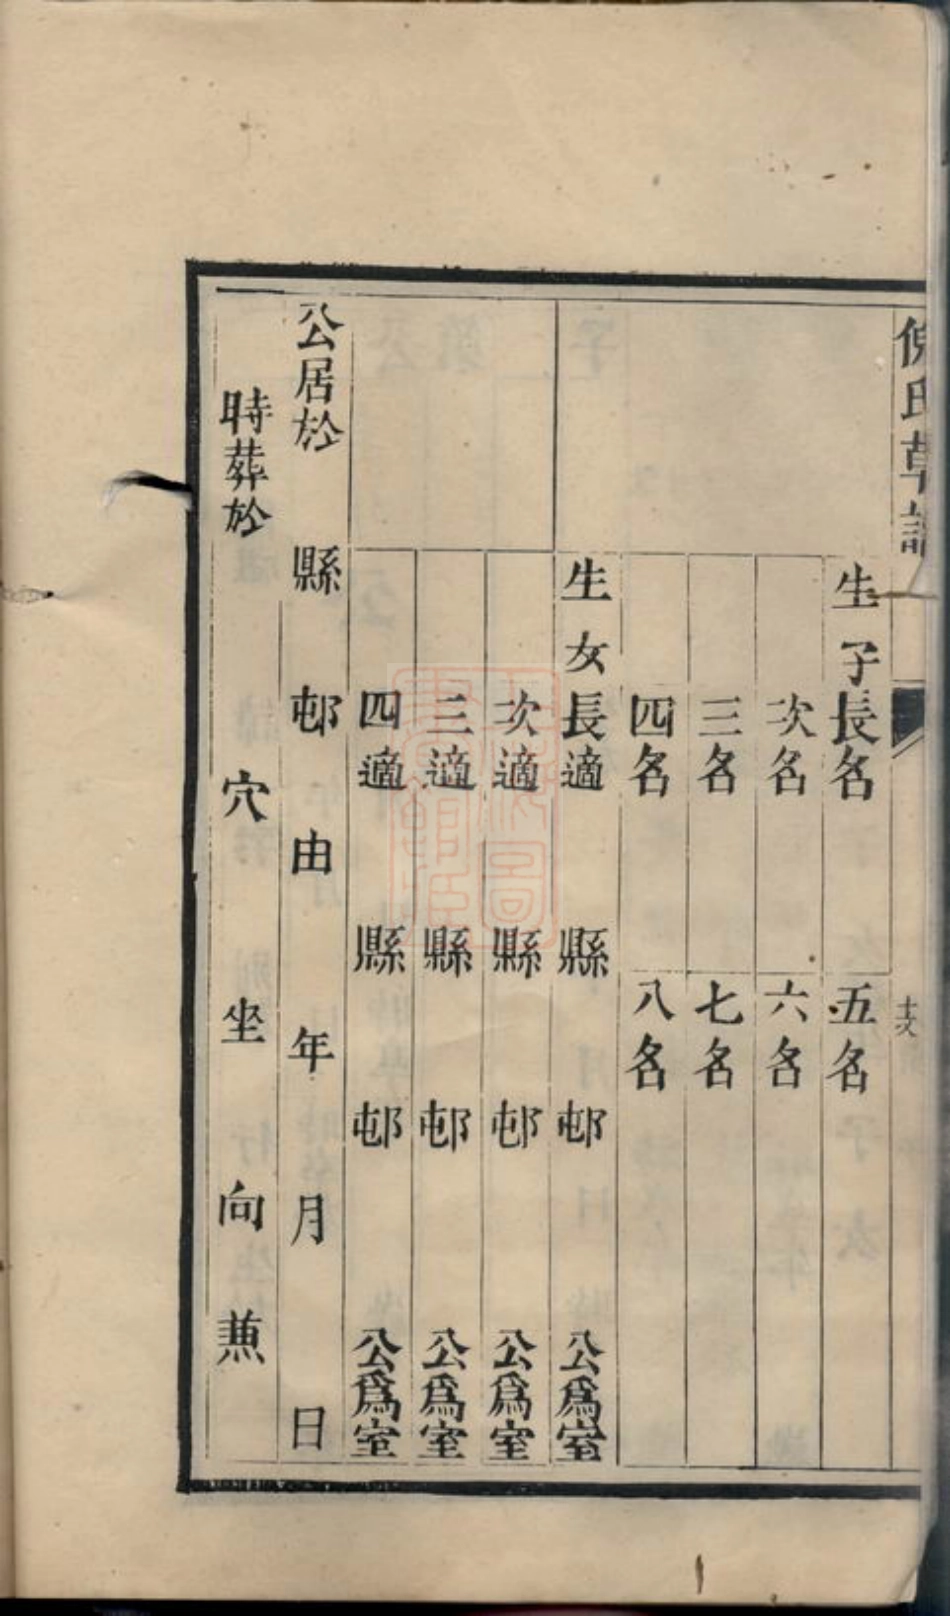 倪氏草譜
生子長名 五名
次名 六名
三名 七名
四名 八名
生女長適 縣 邨 公爲室
次適 縣 邨 公爲室
三適 縣 邨 公爲室
四適 縣 邨 公爲室
公居於 縣 邨由 年 月 日
時葬於 穴 坐 向 兼